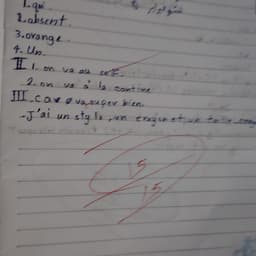 1. qui
2. absent.
3. orange.
4. Un.
II 1. on va au
2. on va à la cantine
III. ça va super bien.
- J'ai un stylo, un crayon et un
15
15